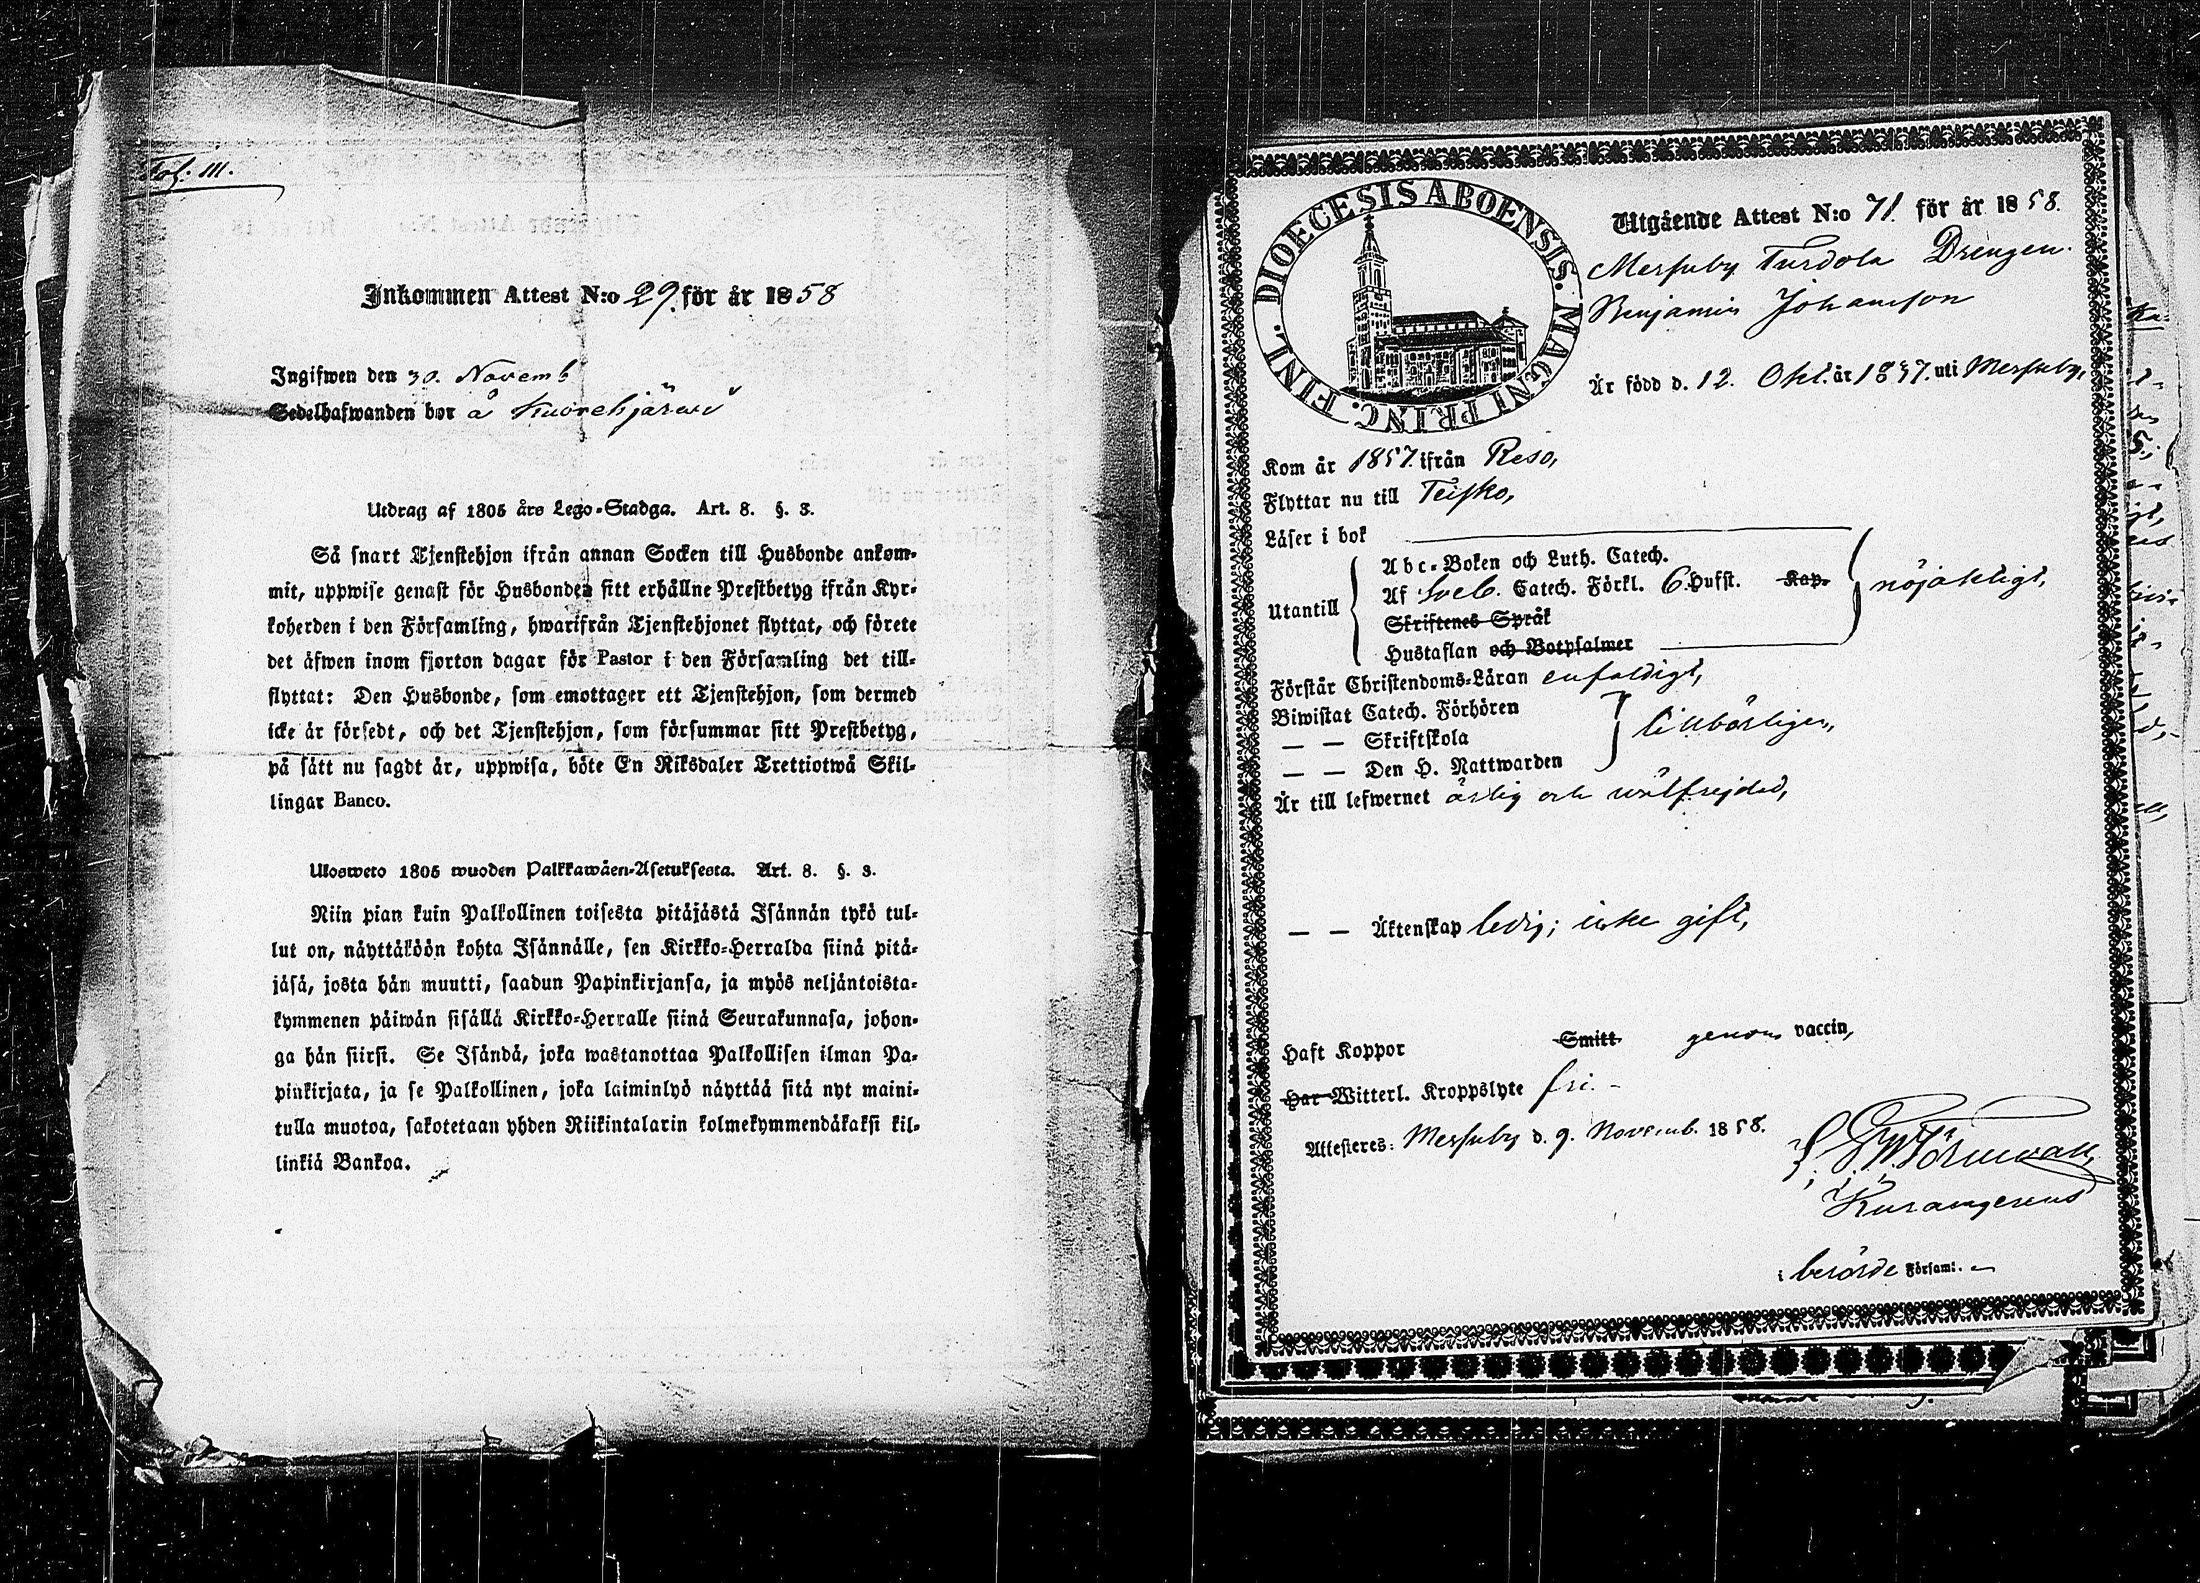 Fol: 111.
Inkommen Attest N:o 29. för år 1858
Ingifwen den 30. Novemb
Sedelhafwanden bor å Kuorehjärwi
Utdrag af 1805 års Lego-Stadga. Art. 8. §. 3.
Så snart Tjenstehjon ifrån annan Socken till Husbonde ankom-
mit, uppwise genast för Husbonden sitt erhållne Prestbetyg ifrån Kyr-
koherden i den Församling, hwarifrån Tjenstehjonet flyttat, och förete
det äfwen inom fjorton dagar för Pastor i den Församling det till-
flyttat: Den Husbonde, som emottager ett Tjenstehjon, som dermed
icke är försedt, och det Tjenstehjon, som försummar sitt Prestbetyg,
på sätt nu sagdt är, uppwisa, böte En Riksdaler Trettiotwå Skil-
lingar Banco.
Ulosweto 1805 wuoden Palkkawäen-Asetuksesta. Art. 8. §. 3.
Niin pian kuin Palkollinen toisesta pitäjästä Isännän tykö tul-
lut on, näyttäköön kohta Isännälle, sen Kirkko-Herralda siinä pitä-
jäsä, josta hän muutti, saadun Papinkirjansa, ja myös neljäntoista-
kymmenen päiwän sisällä Kirkko-Herralle siinä Seurakunnasa, johon-
ga hän siirsi. Se Isändä, joka wastanottaa Palkollisen ilman Pa-
pinkirjata, ja se Palkollinen, joka laiminlyö näyttää sitä nyt maini-
tulla muotoa, sakotetaan yhden Riikintalarin kolmekymmendäkaksi kil-
linkiä Bankoa.
DIOECESIS ABOENSIS. MAGNI PRINC. FINL.
Utgående Attest N:o 71. för år 1858.
Merfuby Turdola Drengen.
Benjamin Johansson
Är född d. 12. Okt. år 1837. uti Merfuby,
Kom år 1857. ifrån Reso,
Flyttar nu till Teisko,
Läser i bok
Utantill
Abc-Boken och Luth. Catech.
Af Sveb. Catech. Förkl. 6. Hufst. Kap. nöjaktligt,
Skriftenes Språk
Hustaflan och Botpsalmer
Förstår Christendoms-Läran enfaldigt,
Biwistat Catech. Förhören
— — Skriftskola tillbörligen,
— — Den H. Nattwarden
Är till lefwernet ärlig och wälfrejdad,
— — Äktenskap ledig; icke gift,
Haft Koppor Smitt genom vaccin,
Har Witterl. Kroppslyte fri. -
Attesteres: Merfuby d. 9. Novemb. 1858.
i berörde Församl.